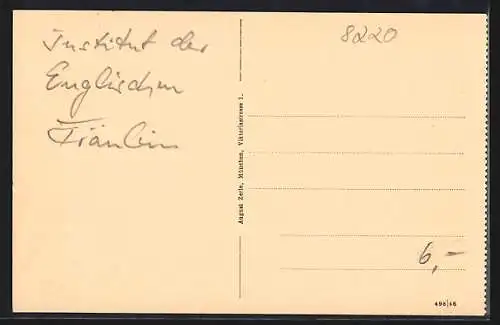 Institut der
Englischen
Fräulein
8220
August Zerle, München, Viktoriastrasse 1.
6,-
498|46